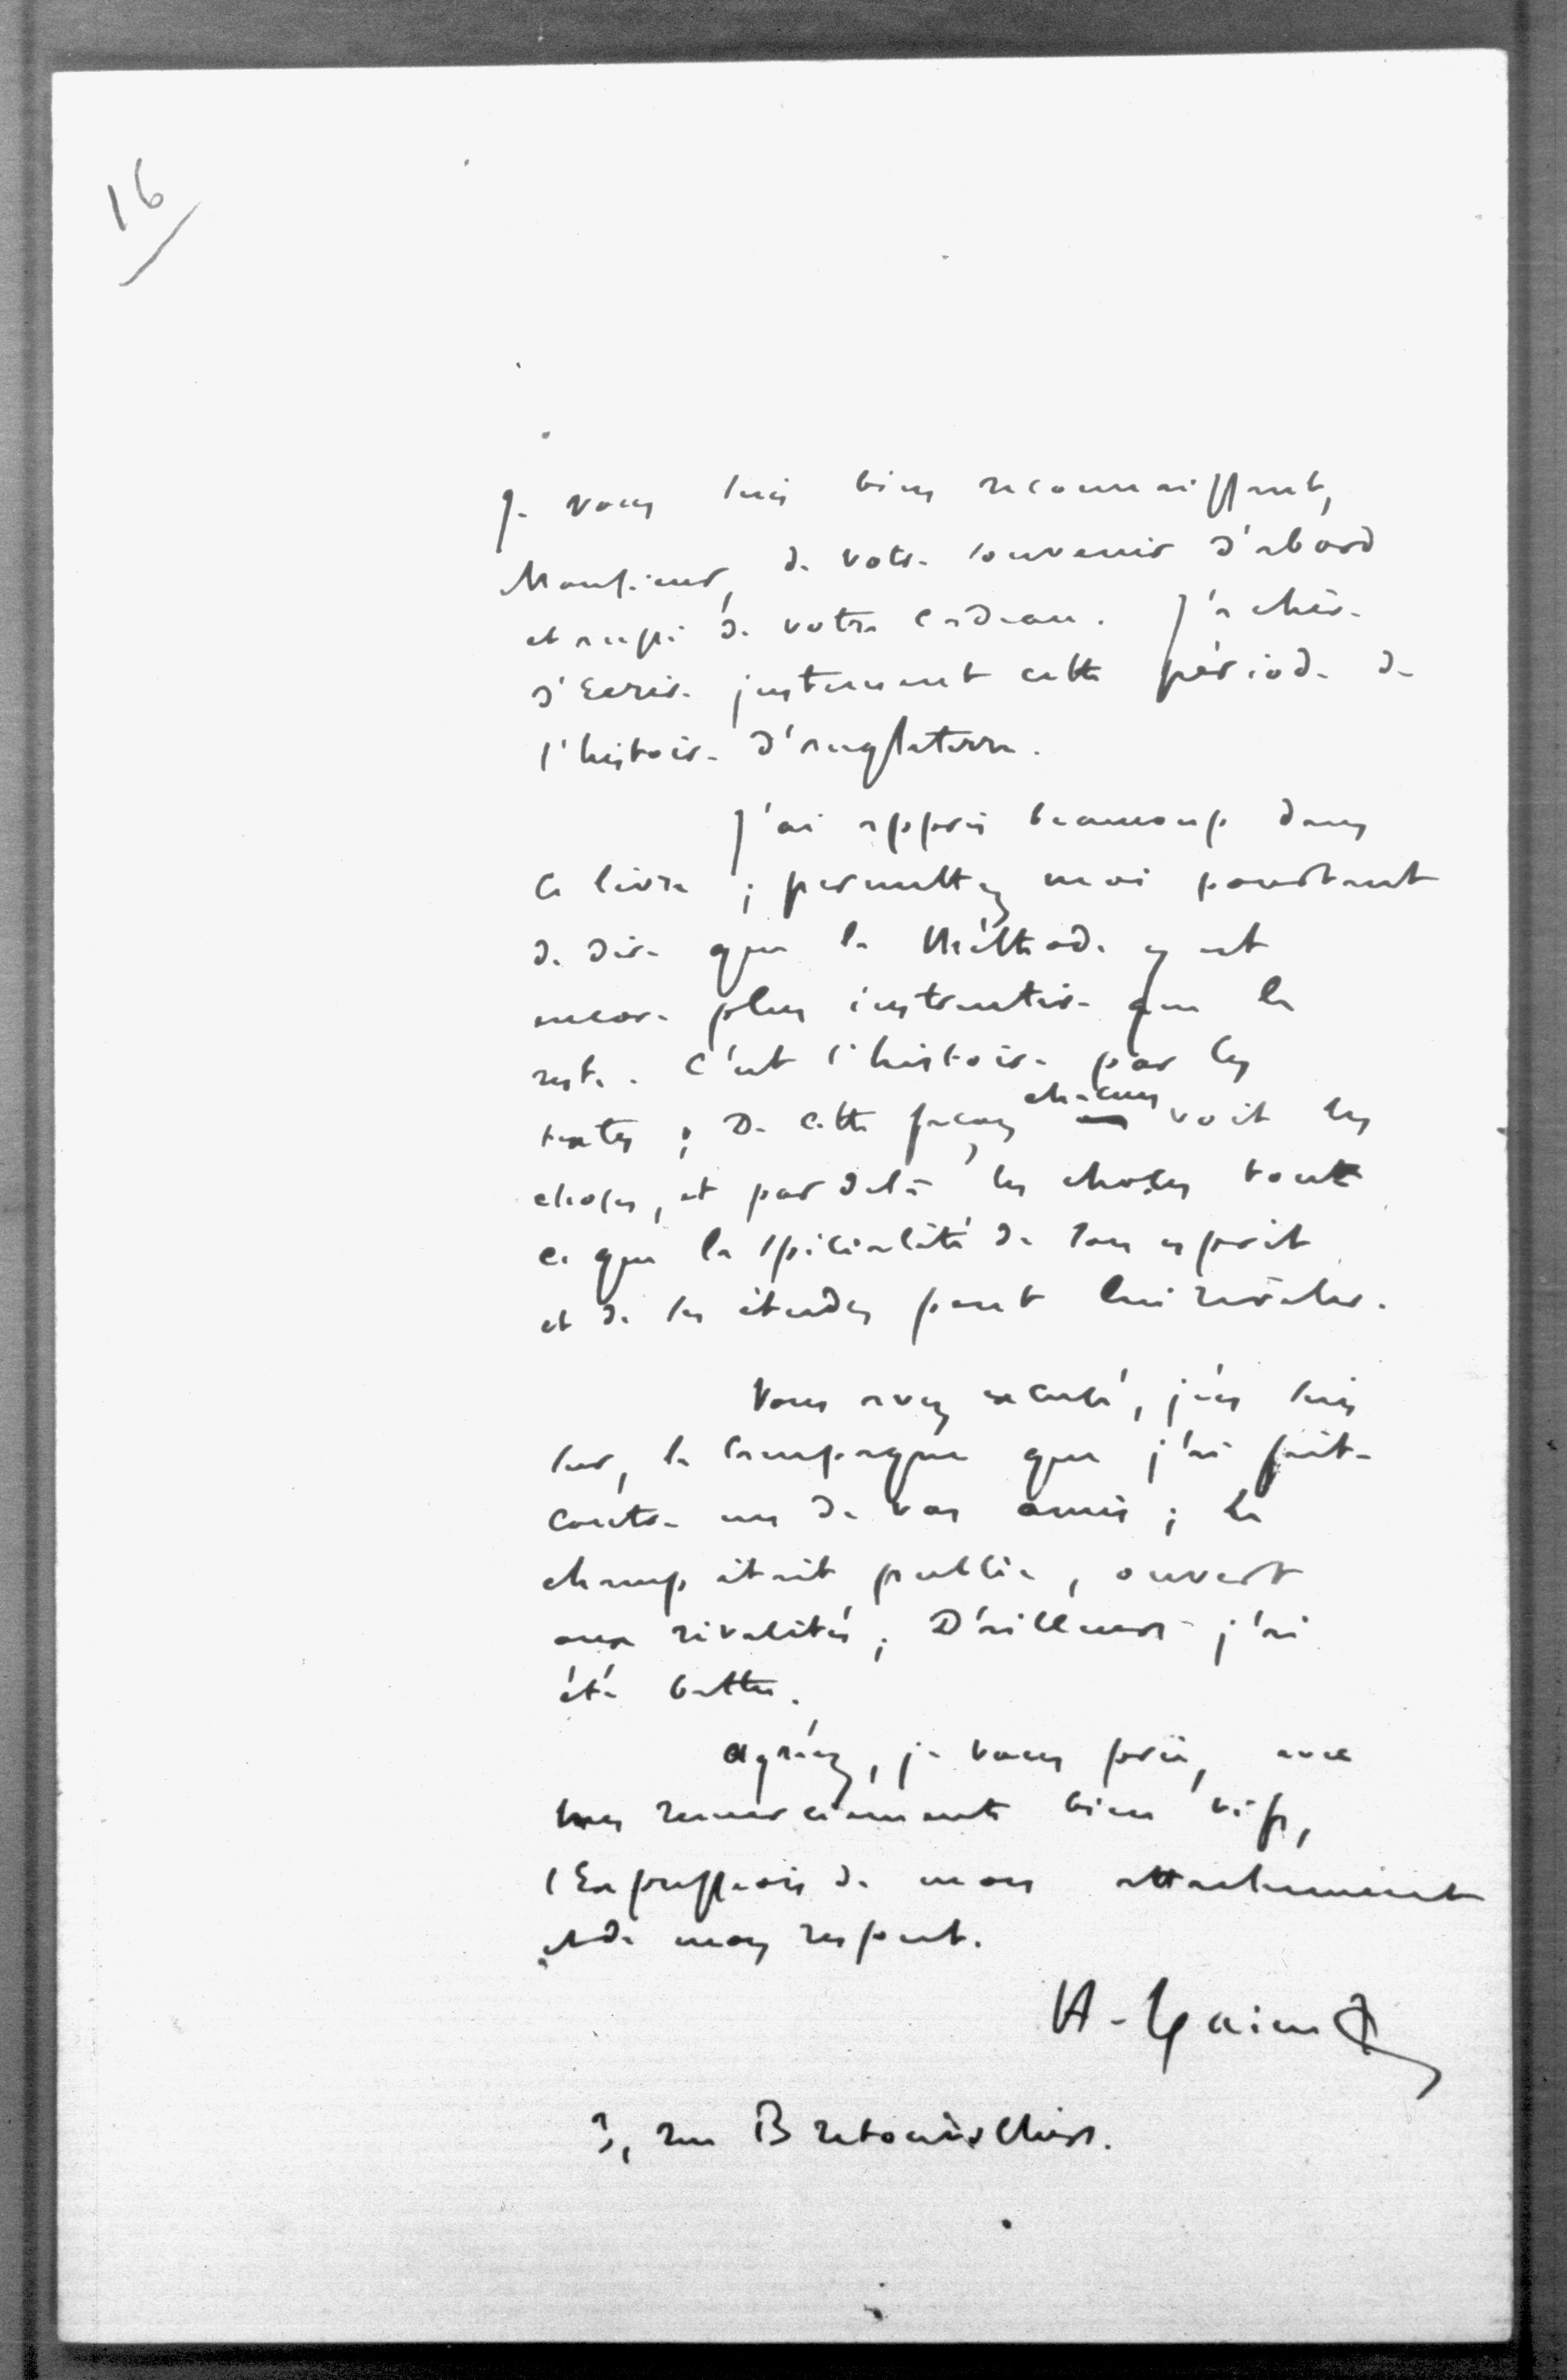 16
Je vous suis bien reconnaissant,
Monsieur, de votre souvenir d'abord
et aussi de votre cadeau. J'achève
d'Ecrire justement cette période de
l'histoire d'angleterre.
J'ai appris beaucoup dans
ce livre ; permettez moi pourtant
de dire que la Méthode y est
encore plus instructive que le
reste. C'est l'histoire par les
textes ; De cette façon chacun voit les
choses, et par delà les choses tout
ce que la spécialité de son esprit
et de ses études peut lui révéler.
Vous avez excusé, j'en suis
sur, la Campagne que j'ai faite
contre un de vos amis ; le
champ était public, ouvert
aux rivalités ; D'ailleurs j'ai
été battu.
agréez, je vous prie, avec
mes remerciements bien vifs,
l'Expression de mon attachement
et de mon respect.
H. Taine
3, rue Bretonvilliers.